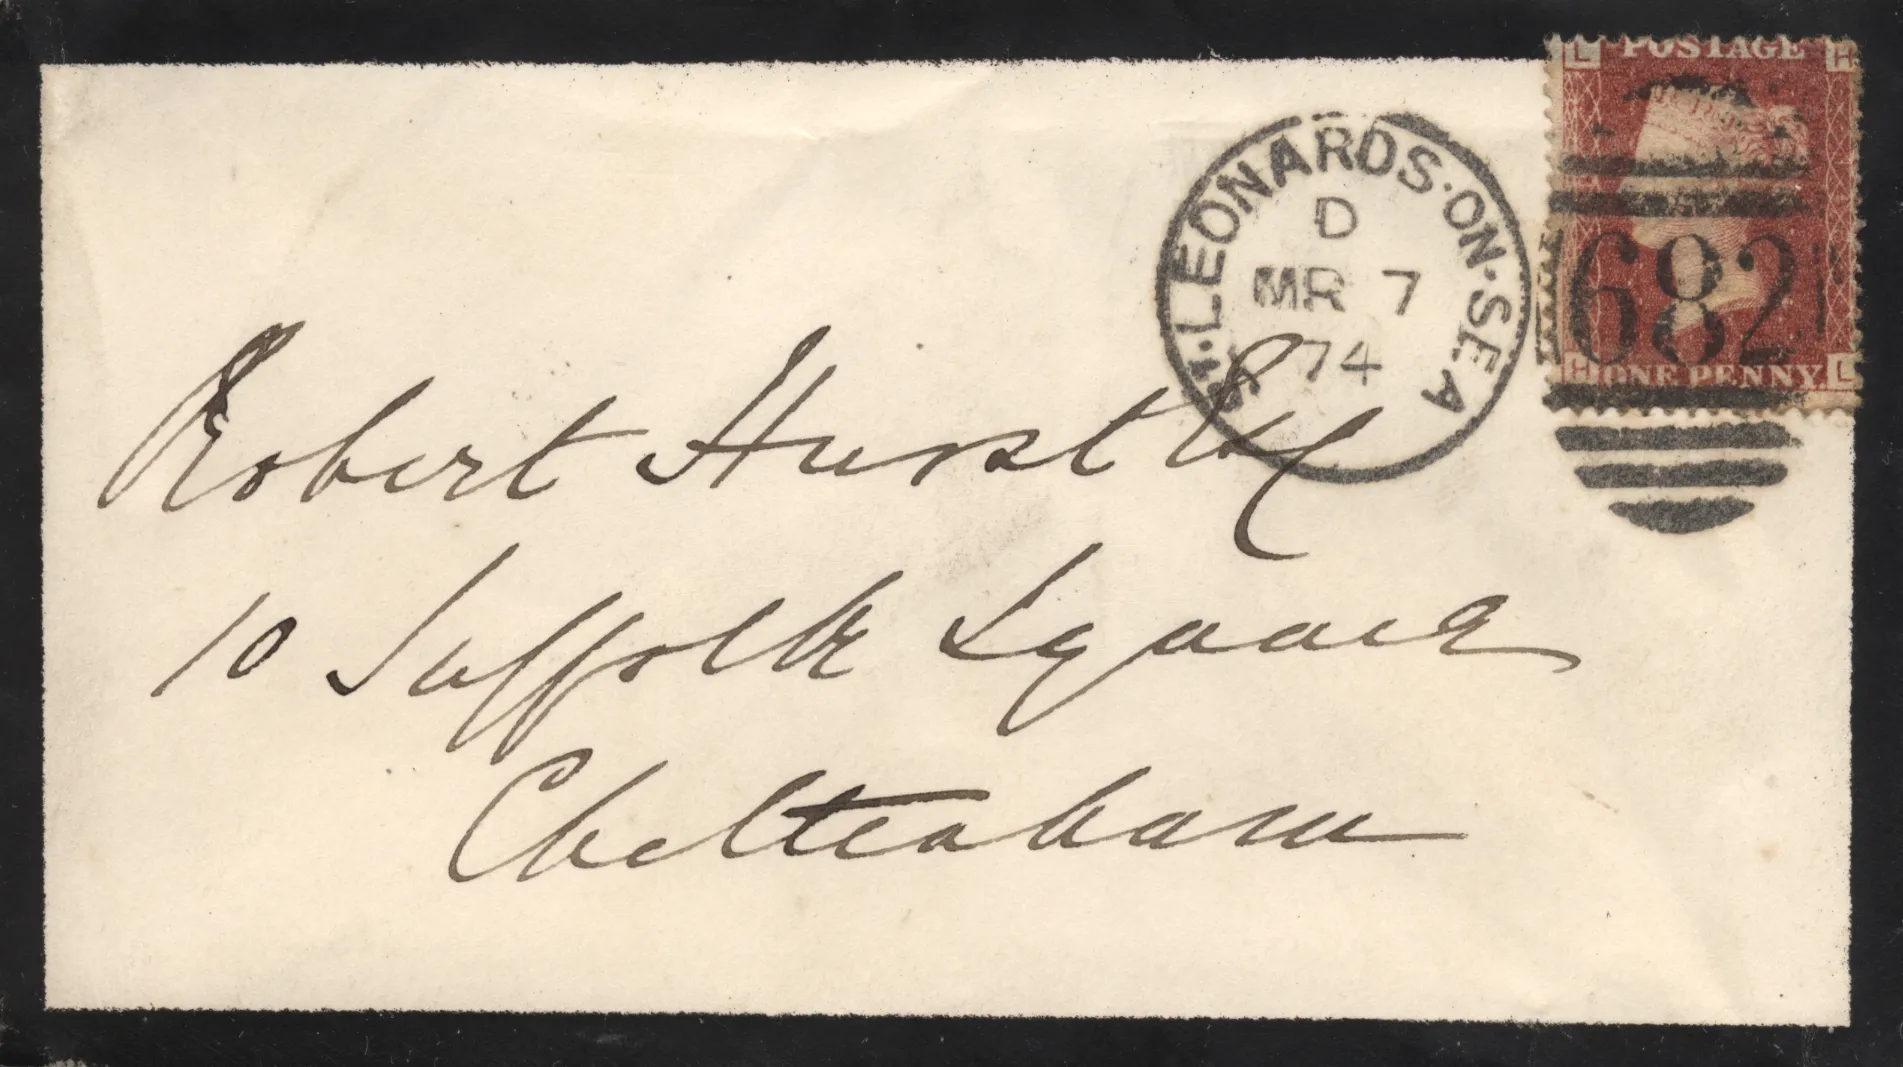 L POSTAGE H
ST. LEONARDS·ON·SEA
D
MR 7
74
682
H ONE PENNY. L
Robert Hurst Esq
10 Suffolk Square
Cheltenham